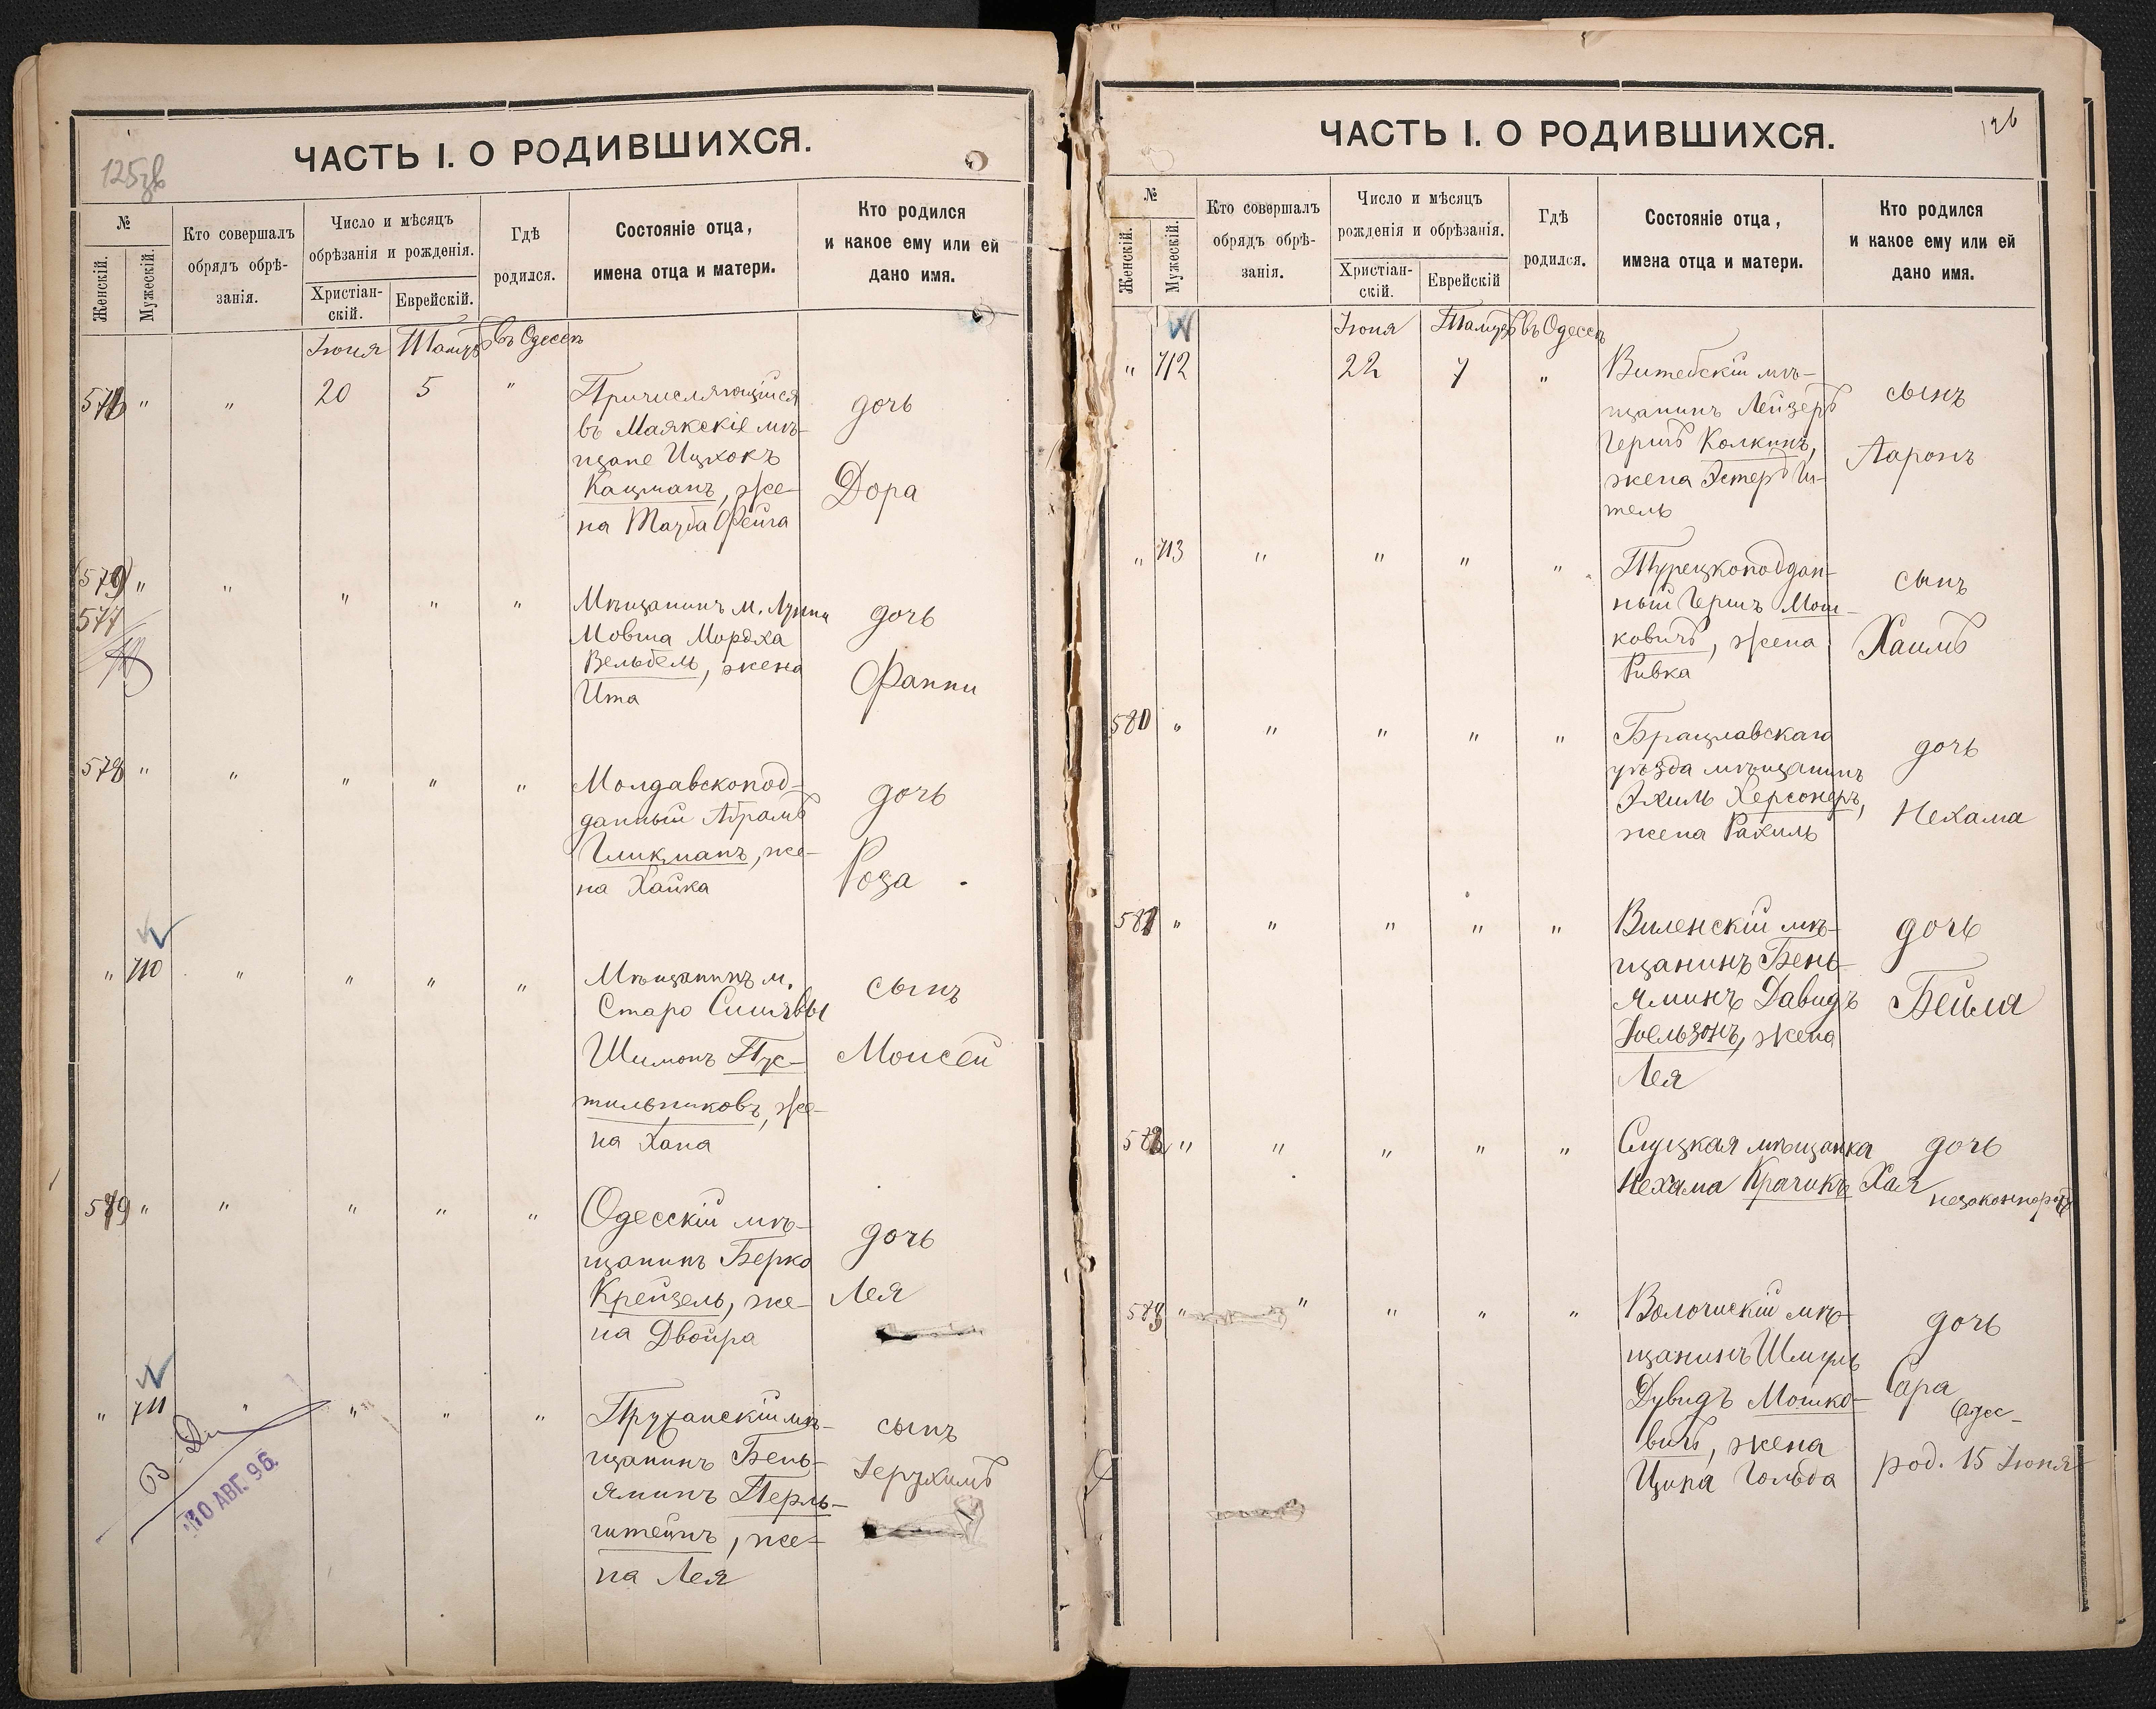 125зв
ЧАСТЬ I. О РОДИВШИХСЯ.
№
Женскій.
Мужескій.
Кто совершалъ
обрядъ обрѣ-
занія.
Число и мѣсяцъ
обрѣзанія и рожденія.
Христіан-
скій.
Еврейскій.
Гдѣ
родился.
Состояніе отца,
имена отца и матери.
Кто родился
и какое ему или ей
дано имя.
Іюня Тамуз въ Одессѣ
576 " " 20 5 "
Причисляющійся
въ Маякскіе мѣ-
щане Ицхокъ
Кацманъ, же-
на Тауба Фейга
дочь
Дора
(579) " " " " "
577
Мѣщанинъ м. Лунны
Мовша Мордха
Вельбель, жена
Ита
дочь
Фанни
578 " " " " "
Молдавскопод-
данный Абрамъ
Гликманъ, же-
на Хайка
дочь
Роза
" 710 " " " "
Мѣщанинъ м.
Старо Синявы
Шимонъ Пус-
тильниковъ, же-
на Хана
сынъ
Моисей
579 " " " " "
Одесскій мѣ-
щанинъ Берко
Крейзель, же-
на Двойра
дочь
Лея
" 711 " " " "
Пружанскій мѣ-
щанинъ Бень-
яминъ Перль-
штейнъ, же-
на Лея
сынъ
Іерухимъ
10 АВГ. 96
126
ЧАСТЬ I. О РОДИВШИХСЯ.
№
Женскій.
Мужескій.
Кто совершалъ
обрядъ обрѣ-
занія.
Число и мѣсяцъ
рожденія и обрѣзанія.
Христіан-
скій.
Еврейскій
Гдѣ
родился.
Состояніе отца,
имена отца и матери.
Кто родился
и какое ему или ей
дано имя.
Іюня Тамуз въ Одессѣ
" 712 22 7 "
Витебскій мѣ-
щанинъ Лейзеръ
Гершъ Колкинъ,
жена Эстеръ Ги-
тель
сынъ
Ааронъ
" 713 " " " "
Турецкоподдан-
ный Гершъ Мош-
ковичъ, жена
Ривка
сынъ
Хаимъ
580 " " " " "
Брацлавскаго
уѣзда мѣщанинъ
Эхиль Херсонеръ,
жена Рахиль
дочь
Нехама
581 " " " " "
Виленскій мѣ-
щанинъ Бень-
яминъ Давидъ
Іоельзонъ, жена
Лея
дочь
Бейля
582 " " " " "
Слуцкая мѣщанка
Нехама Крачикъ
дочь
Хая
незаконнорож
583 " " " " "
Волочискій мѣ-
щанинъ Шмуль
Дувидъ Мошко-
вичъ, жена
Ципа Гольда
дочь
Сара
Одес-
род. 15 Іюня